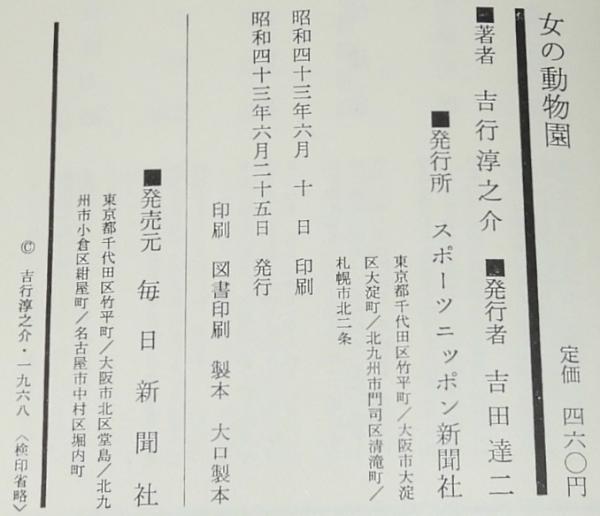 女の動物園
定価 四六〇円
■著者 吉行淳之介 ■発行者 吉田達二
■発行所 スポーツニッポン新聞社
東京都千代田区竹平町/大阪市大淀
区大淀町/北九州市門司区清滝町/
札幌市北二条
昭和四十三年六月 十 日 印刷
昭和四十三年六月二十五日 発行
印刷 図書印刷 製本 大口製本
■発売元 毎日新聞社
東京都千代田区竹平町/大阪市北区堂島/北九
州市小倉区紺屋町/名古屋市中村区堀内町
© 吉行淳之介・一九六八 〈検印省略〉